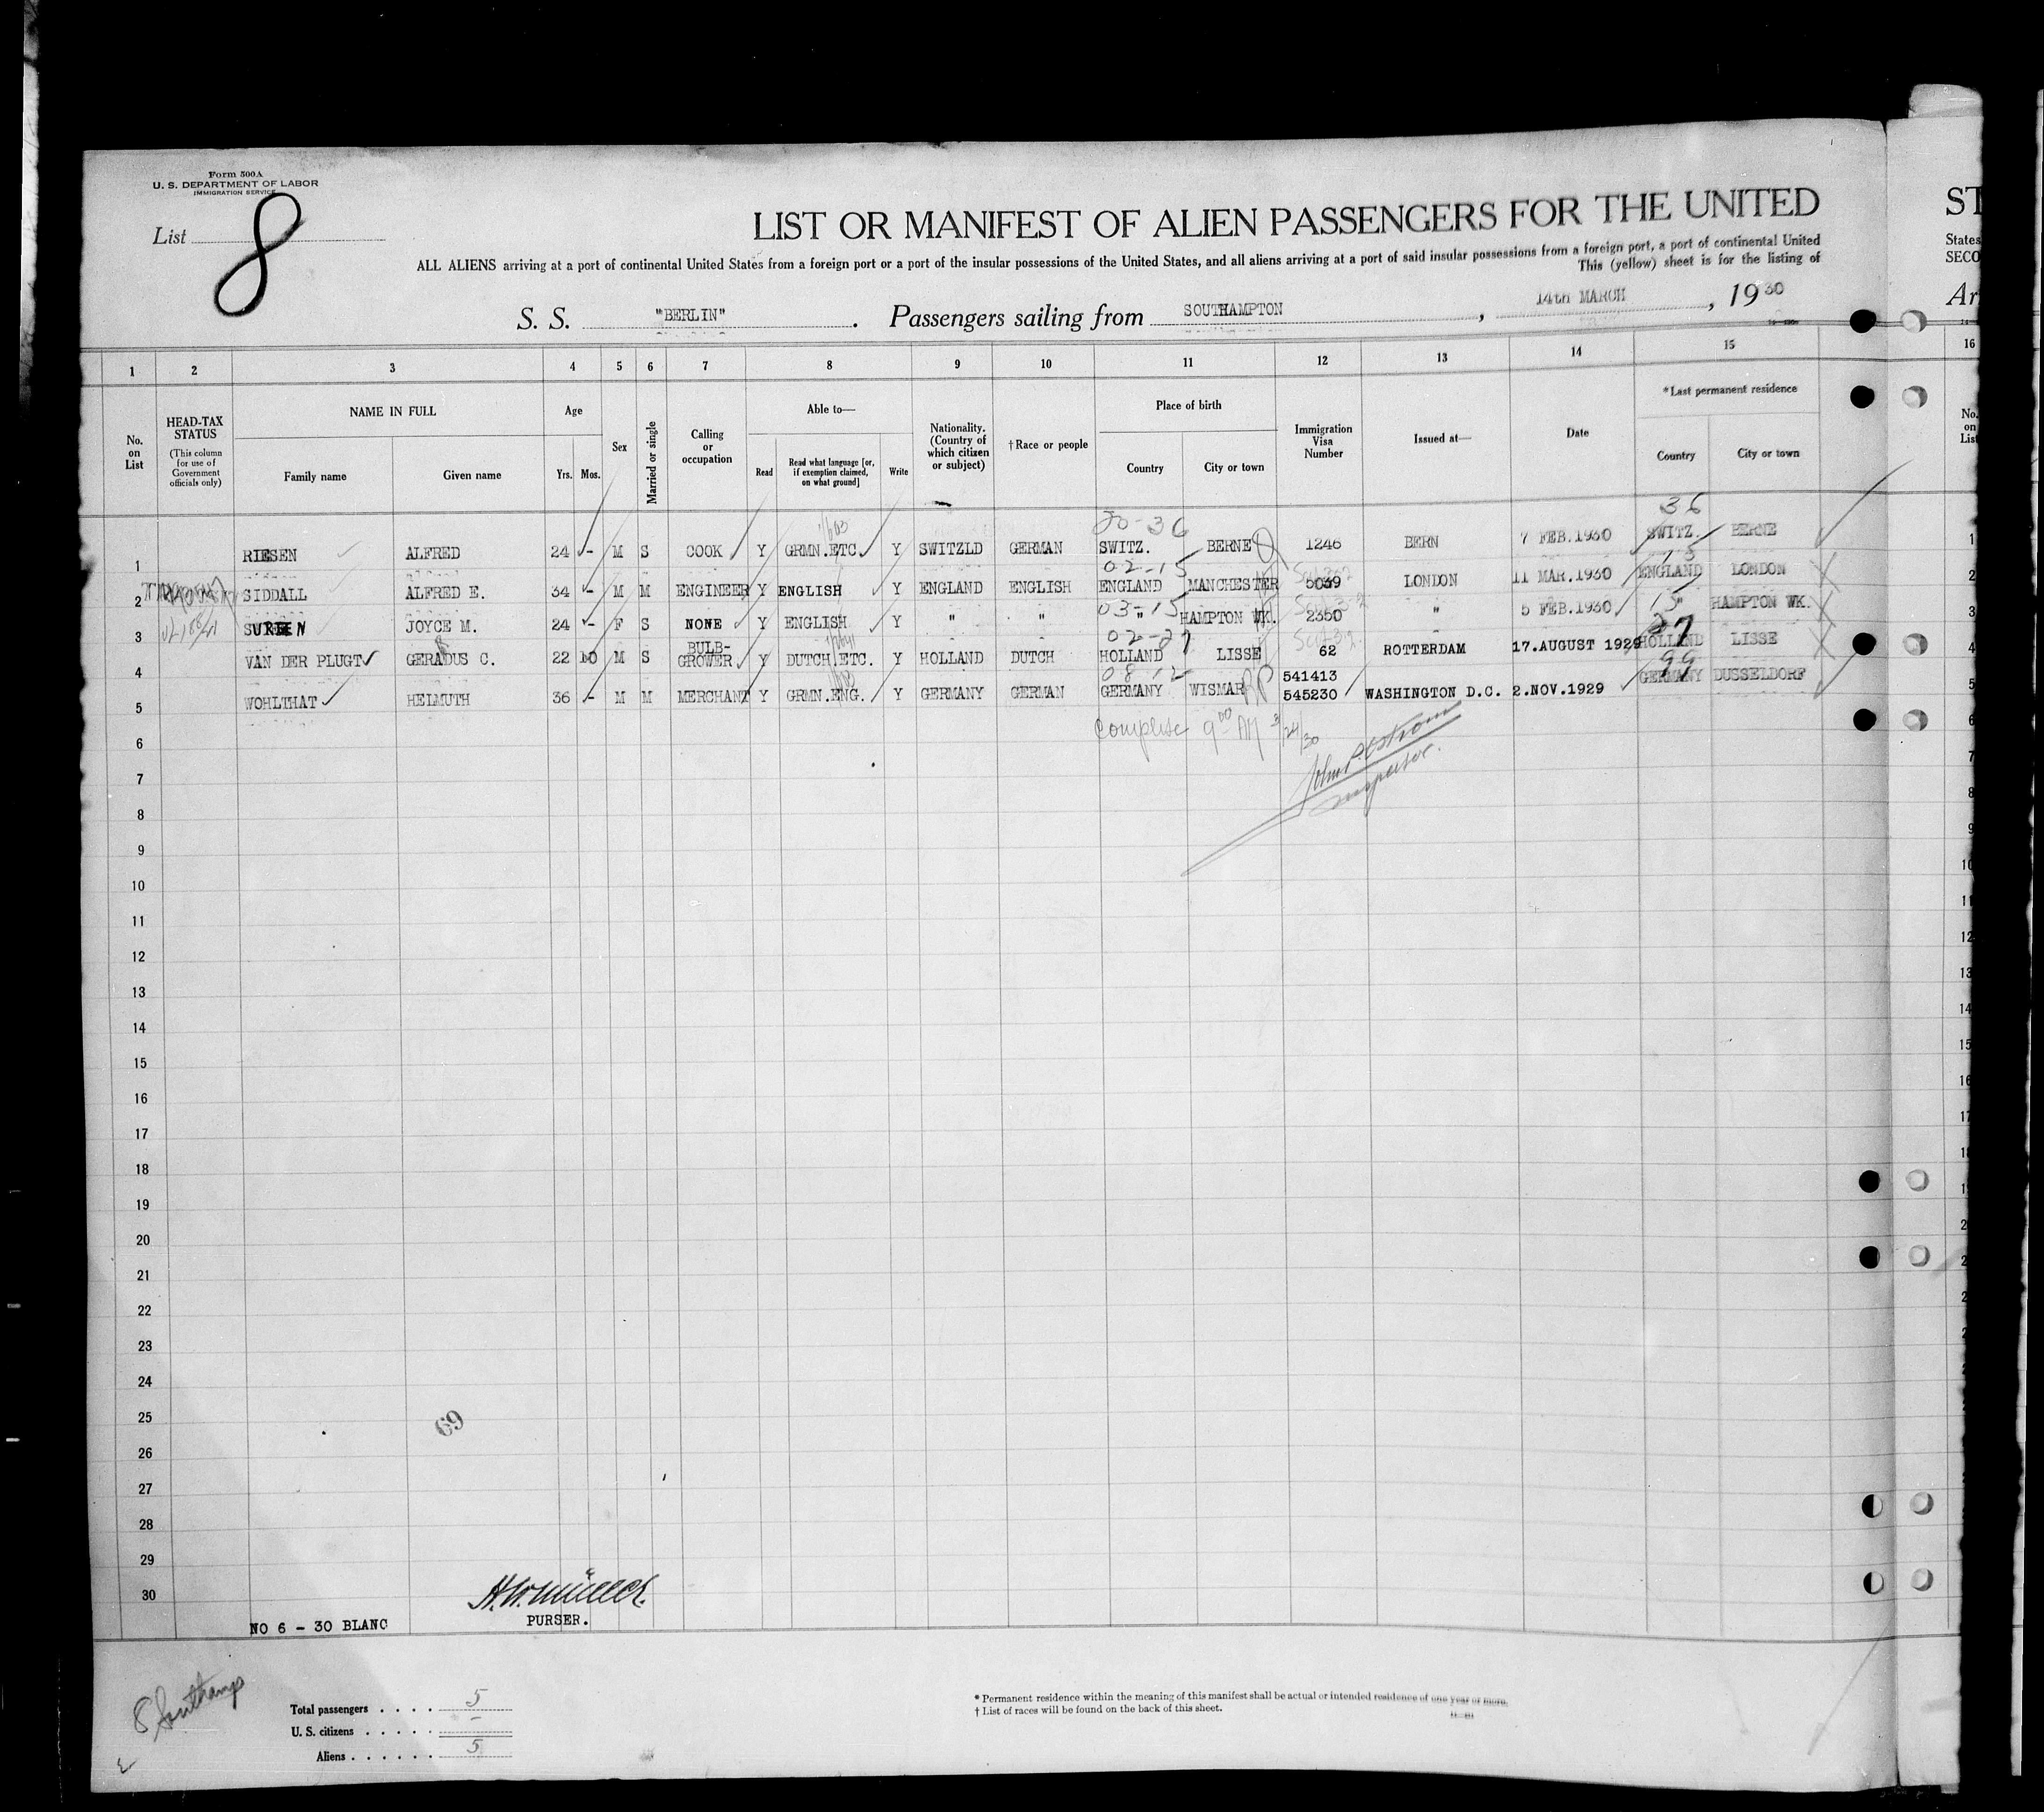 Form 500A
U. S. DEPARTMENT OF LABOR
IMMIGRATION SERVICE
List 8
LIST OR MANIFEST OF ALIEN PASSENGERS FOR THE UNITED
ST
ALL ALIENS arriving at a port of continental United States from a foreign port or a port of the insular possessions of the United States, and all aliens arriving at a port of said insular possessions from a foreign port, a port of continental United
States
This (yellow) sheet is for the listing of
SECO
S. S. "BERLIN". Passengers sailing from SOUTHAMPTON, 14th MARCH, 1930
Ar
1 2 3 4 5 6 7 8 9 10 11 12 13 14 15 16
No. on List
HEAD-TAX STATUS
(This column for use of Government officials only)
NAME IN FULL
Family name
Given name
Age
Yrs.
Mos.
Sex
Married or single
Calling or occupation
Able to—
Read
Read what language [or, if exemption claimed, on what ground]
Write
Nationality. (Country of which citizen or subject)
†Race or people
Place of birth
Country
City or town
Immigration Visa Number
Issued at—
Date
*Last permanent residence
Country
City or town
No. on List
20-36
36
1 RIESEN ALFRED 24 - M S COOK Y GRMN.ETC. Y SWITZLD GERMAN SWITZ. BERNE 1246 BERN 7 FEB.1930 SWITZ. BERNE 1
02-15
15
2 SIDDALL ALFRED E. 34 - M M ENGINEER Y ENGLISH Y ENGLAND ENGLISH ENGLAND MANCHESTER 5039 LONDON 11 MAR.1930 ENGLAND LONDON 2
03-15
15
3 JOYCE M. 24 - F S NONE Y ENGLISH Y " " " HAMPTON WK. 2350 " 5 FEB.1930 " HAMPTON WK. 3
02-27
27
4 VAN DER PLUGT GERADUS C. 22 10 M S BULB-GROWER Y DUTCH ETC. Y HOLLAND DUTCH HOLLAND LISSE 62 ROTTERDAM 17.AUGUST 1929 HOLLAND LISSE 4
08-12
99
541413
5 WOHLTHAT HELMUTH 36 - M M MERCHANT Y GRMN.ENG. Y GERMANY GERMAN GERMANY WISMAR 545230 WASHINGTON D.C. 2.NOV.1929 GERMANY DUSSELDORF 5
Complete 9 00 AM 3/24/30
Inspector.
6
7
8
9
10
11
12
13
14
15
16
17
18
19
20
21
22
23
24
25
69
26
27
28
29
30
H.W.Müller.
NO 6 - 30 BLANC
PURSER.
8 Southamp
Total passengers . . . . 5
U. S. citizens . . . . . -
Aliens . . . . . . 5
* Permanent residence within the meaning of this manifest shall be actual or intended residence of one year or more.
† List of races will be found on the back of this sheet.